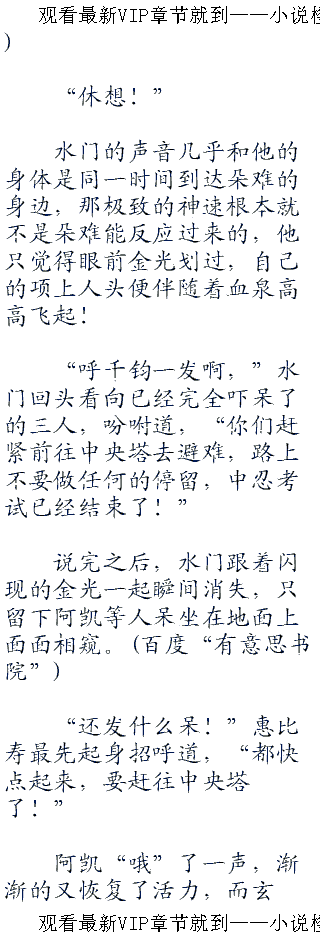 观看最新VIP章节就到——小说
)
“休想！”
水门的声音几乎和他的
身体是同一时间到达朵难的
身边，那极致的神速根本就
不是朵难能反应过来的，他
只觉得眼前金光划过，自己
的项上人头便伴随着血泉高
高飞起！
“呼千钧一发啊，”水
门回头看向已经完全吓呆了
的三人，吩咐道，“你们赶
紧前往中央塔去避难，路上
不要做任何的停留，中忍考
试已经结束了！”
说完之后，水门跟着闪
现的金光一起瞬间消失，只
留下阿凯等人呆坐在地面上
面面相窥。(百度“有意思书
院”)
“还发什么呆！”惠比
寿最先起身招呼道，“都快
点起来，要赶往中央塔
了！”
阿凯“哦”了一声，渐
渐的又恢复了活力，而玄
观看最新VIP章节就到——小说